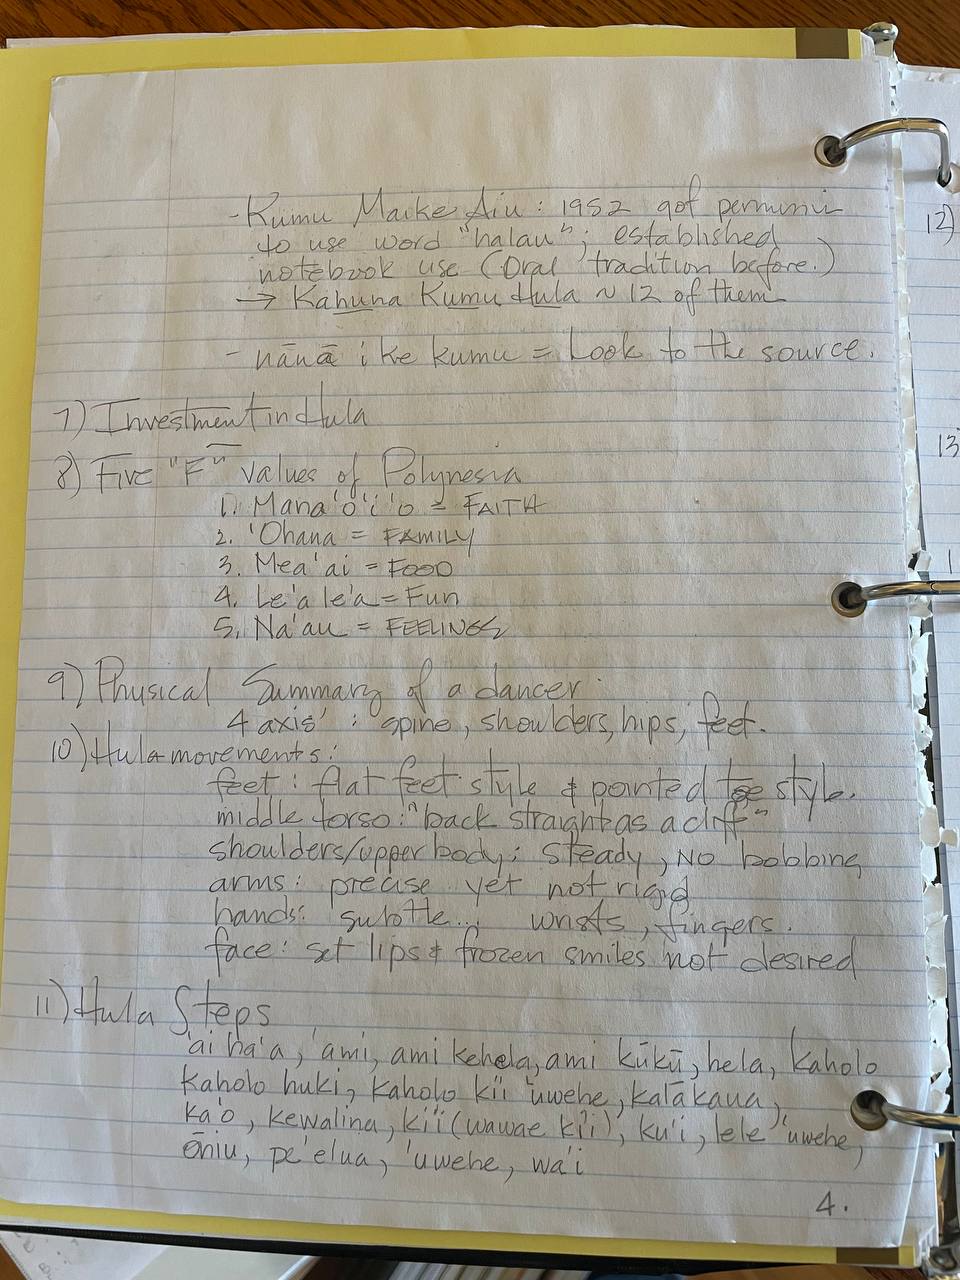 - Kumu Maike Aiu : 1952 got
to use word "halau"; established
notebook use (Oral tradition before.)
→ Kahuna Kumu Hula ~ 12 of them
- nānā i ke kumu = Look to the source.
7) Investment in Hula
8) Five "F" values of Polynesia
1. Mana'o'i'o = FAITH
2. 'Ohana = FAMILY
3. Mea'ai = FOOD
4. Le'a le'a = Fun
5. Na'au = FEELINGS
9) Physical Summary of a dancer:
4 axis' : spine, shoulders, hips, feet.
10) Hula movements:
feet : flat feet style & pointed toe style.
middle torso: "back straight as a cliff"
shoulders/upper body: steady, NO bobbing
arms: precise yet not rigid
hands: subtle... wrists, fingers.
face: set lips & frozen smiles not desired
11) Hula Steps
'ai ha'a, 'ami, ami kahela, ami kūkū, hela, kaholo
kaholo huki, kaholo ki'i 'uwehe, kalākaua,
ka'o, kewalina, ki'i (wawae ki'i), ku'i, lele 'uwehe,
ōniu, pe'elua, 'uwehe, wa'i
4.
12)
13
1